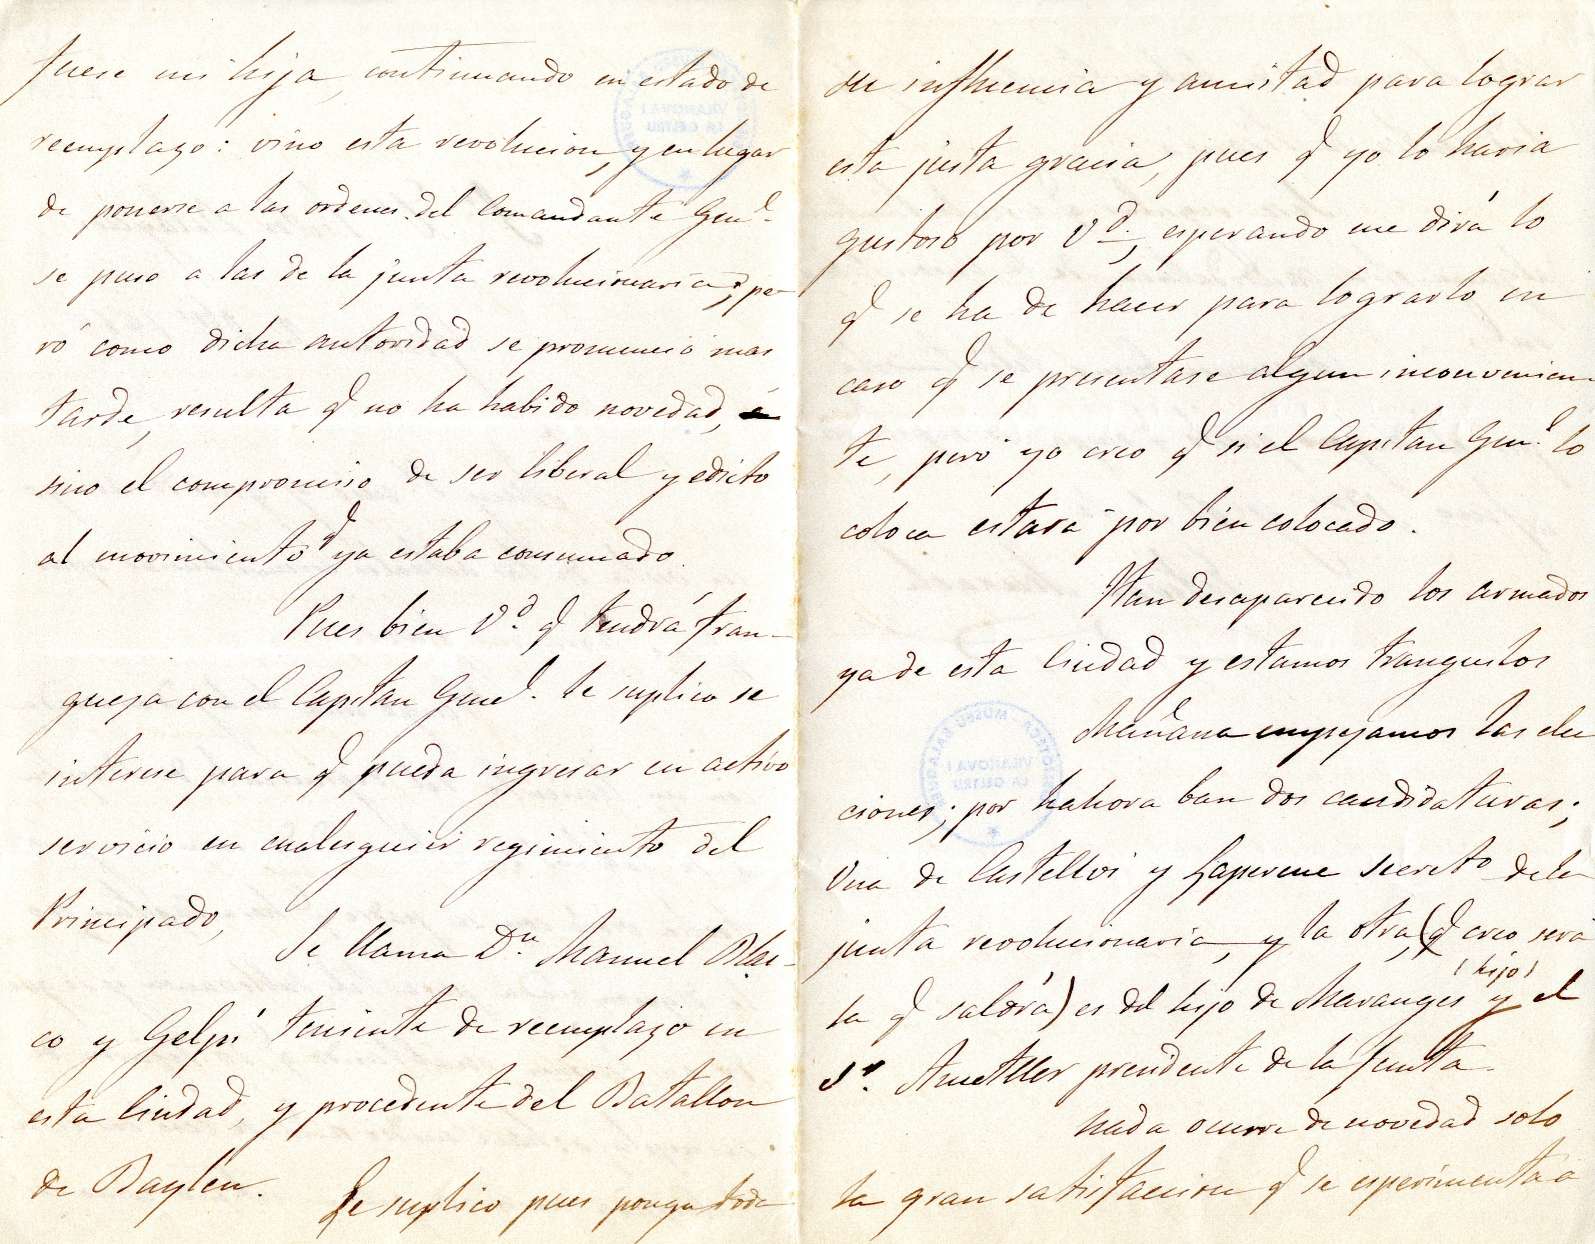 fuese mi hija, continuando en estado de
reemplazo: vino esta revolucion, y en lugar
de ponerse a las ordenes del Comandante Genl.
se puso a las de la junta revolucionaria, pe-
ró como dicha autoridad se pronunció mas
tarde, resulta q no ha habido novedad,
sino el compromiso de ser liberal y edicto
al movimiento q ya estaba consumado.
Pues bien Vd. q tendrá fran-
queza con el Capitan Genel. le suplico se
interese para q pueda ingresar en activo
servicio en cualesquier regimiento del
Principado,
Se llama Dn. Manuel Blas-
co y Gelpi teniente de reemplazo en
esta Ciudad, y procedente del Batallon
de Baylen.
Le suplico pues ponga toda
su influencia y amistad para lograr
esta justa gracia, pues q yo lo haria
gustoso por Vd., esperando me dirá lo
q se ha de hacer para lograrlo en
caso q se presentase algun inconvenien-
te, peró yo creo q si el Capitan Genl. lo
coloca estará por bien colocado.
Han desaparecido los armados
ya de esta Ciudad y estamos tranquilos
Mañana empezamos las elec
ciones; por hahora ban dos candidaturas;
Una de Castellvi y secreto de la
junta revolucionaria, y la otra, (q creo será
la q saldrá) es del hijo de Maranges (hijo) y el
Sr. Ametller presidente de la Junta.
Nada ocurre de novedad solo
la gran satisfaccion q se esperimenta a
VILANOVA I
LA GELTRU
VILANOVA I
LA GELTRU